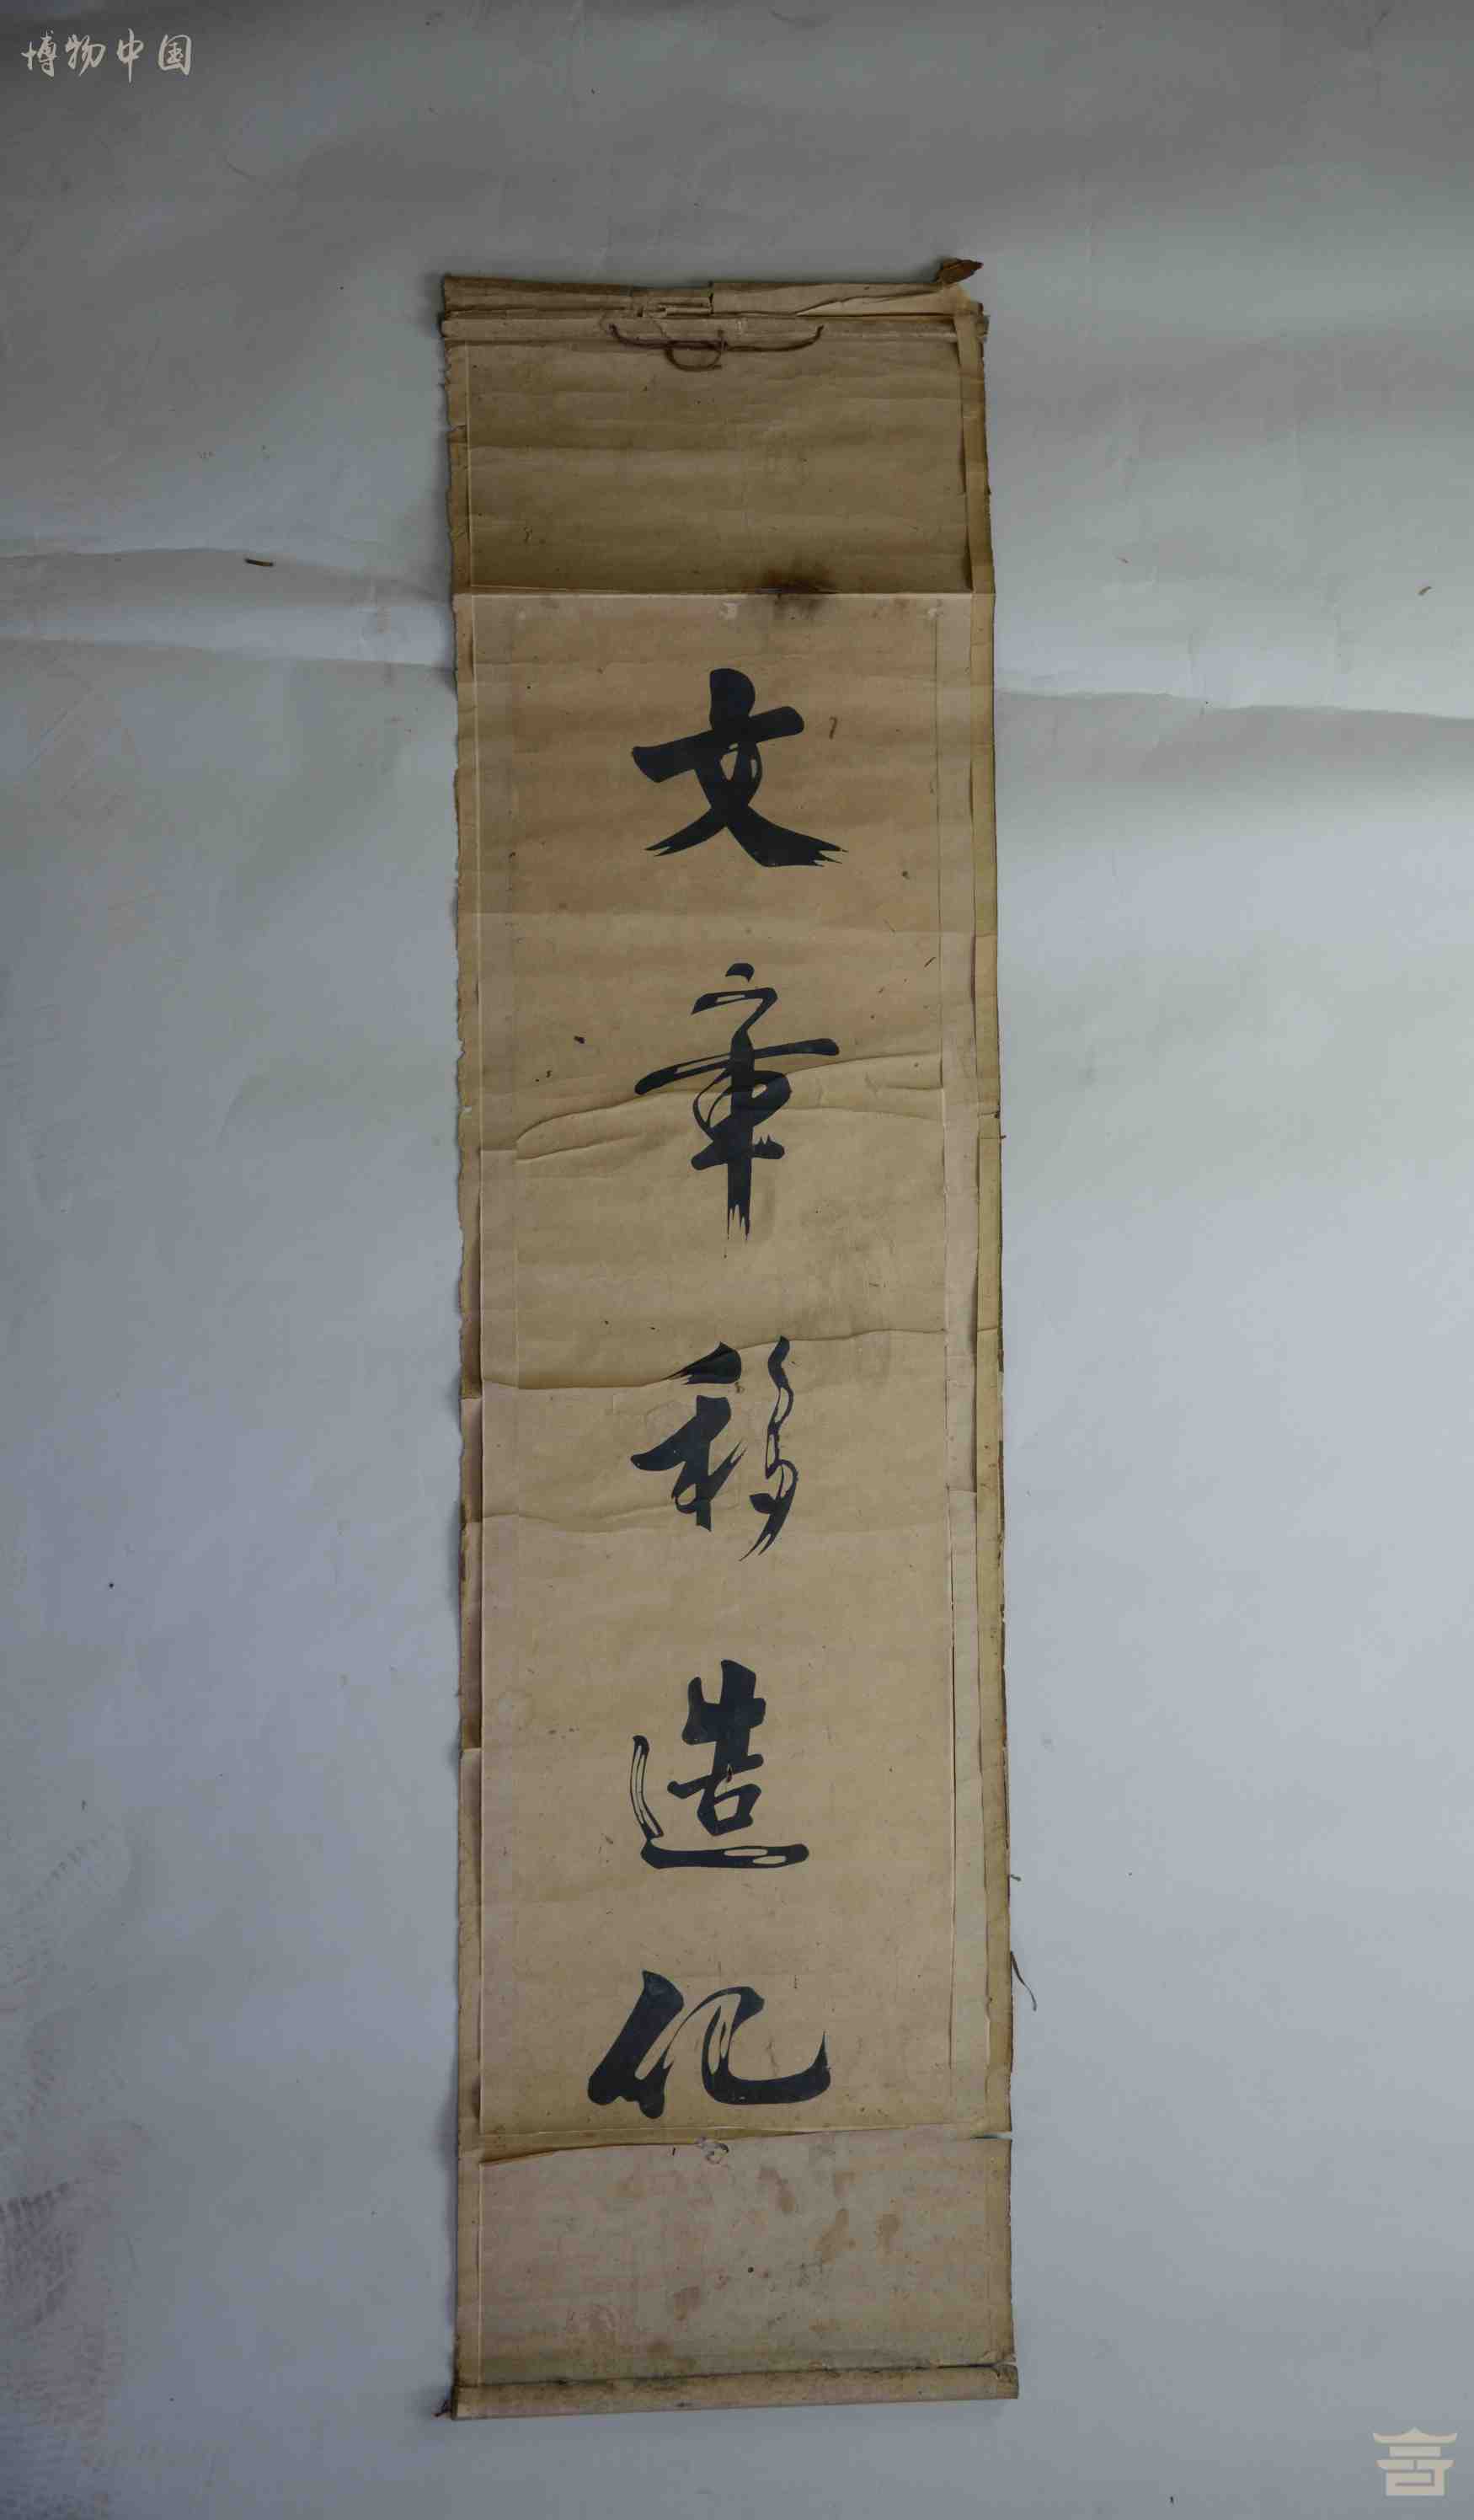 博物中国
文章移造化